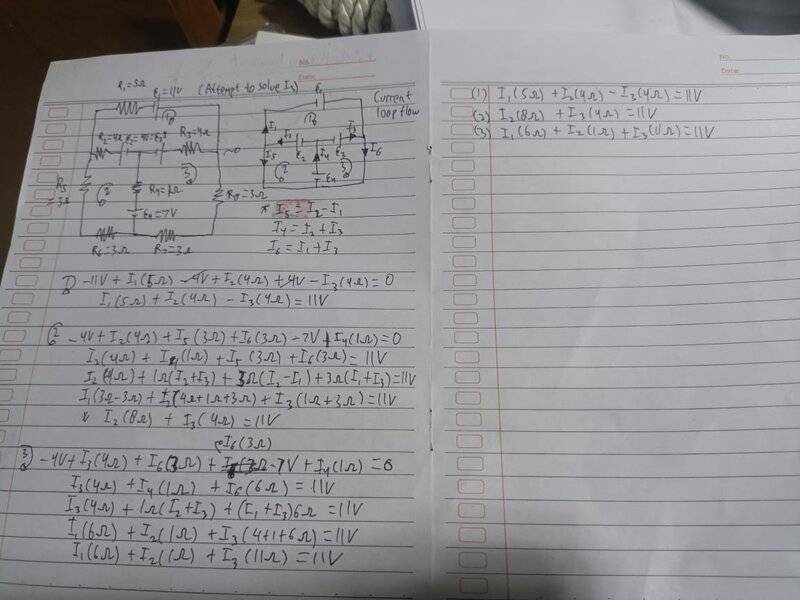 R₁=5Ω
E₁=11V
(Attempt to solve I₃)
R₂=4Ω
R₃=4Ω
R₄=1Ω
E₄=7V
R₅
=3Ω
R₆=3Ω
R₇=3Ω
R₈=3Ω
E₁
Current
loop flow
I₁
I₂
I₃
E₂
I₄
E₃
I₅
I₆
E₄
* I₅ = I₂ - I₁
I₄ = I₂ + I₃
I₆ = I₁ + I₃
1) -11V + I₁(5Ω) - 4V + I₂(4Ω) + 4V - I₃(4Ω) = 0
I₁(5Ω) + I₂(4Ω) - I₃(4Ω) = 11V
-4V + I₂(4Ω) + I₅(3Ω) + I₆(3Ω) - 7V + I₄(1Ω) = 0
I₂(4Ω) + I₄(1Ω) + I₅(3Ω) + I₆(3Ω) = 11V
I₂(4Ω) + 1Ω(I₂+I₃) + 3Ω(I₂-I₁) + 3Ω(I₁+I₃) = 11V
I₁(3Ω-3Ω) + I₂(4Ω+1Ω+3Ω) + I₃(1Ω+3Ω) = 11V
* I₂(8Ω) + I₃(4Ω) = 11V
I₆(3Ω)
3) -4V + I₃(4Ω) + I₆(3Ω) + - 7V + I₄(1Ω) = 0
I₃(4Ω) + I₄(1Ω) + I₆(6Ω) = 11V
I₃(4Ω) + 1Ω(I₂+I₃) + (I₁+I₃)6Ω = 11V
I₁(6Ω) + I₂(1Ω) + I₃(4+1+6Ω) = 11V
I₁(6Ω) + I₂(1Ω) + I₃(11Ω) = 11V
No.
Date
(1) I₁(5Ω) + I₂(4Ω) - I₃(4Ω) = 11V
(2) I₂(8Ω) + I₃(4Ω) = 11V
(3) I₁(6Ω) + I₂(1Ω) + I₃(11Ω) = 11V